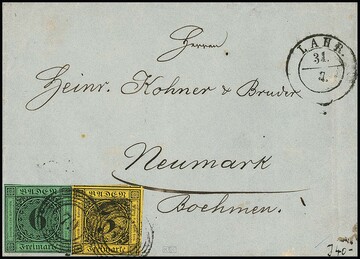 Herren
LAHR.
31.
7.
Heinr. Kohner & Bruder
Neumark
Boehmen.
BADEN
6
Freimarke
BADEN
3
Freimarke